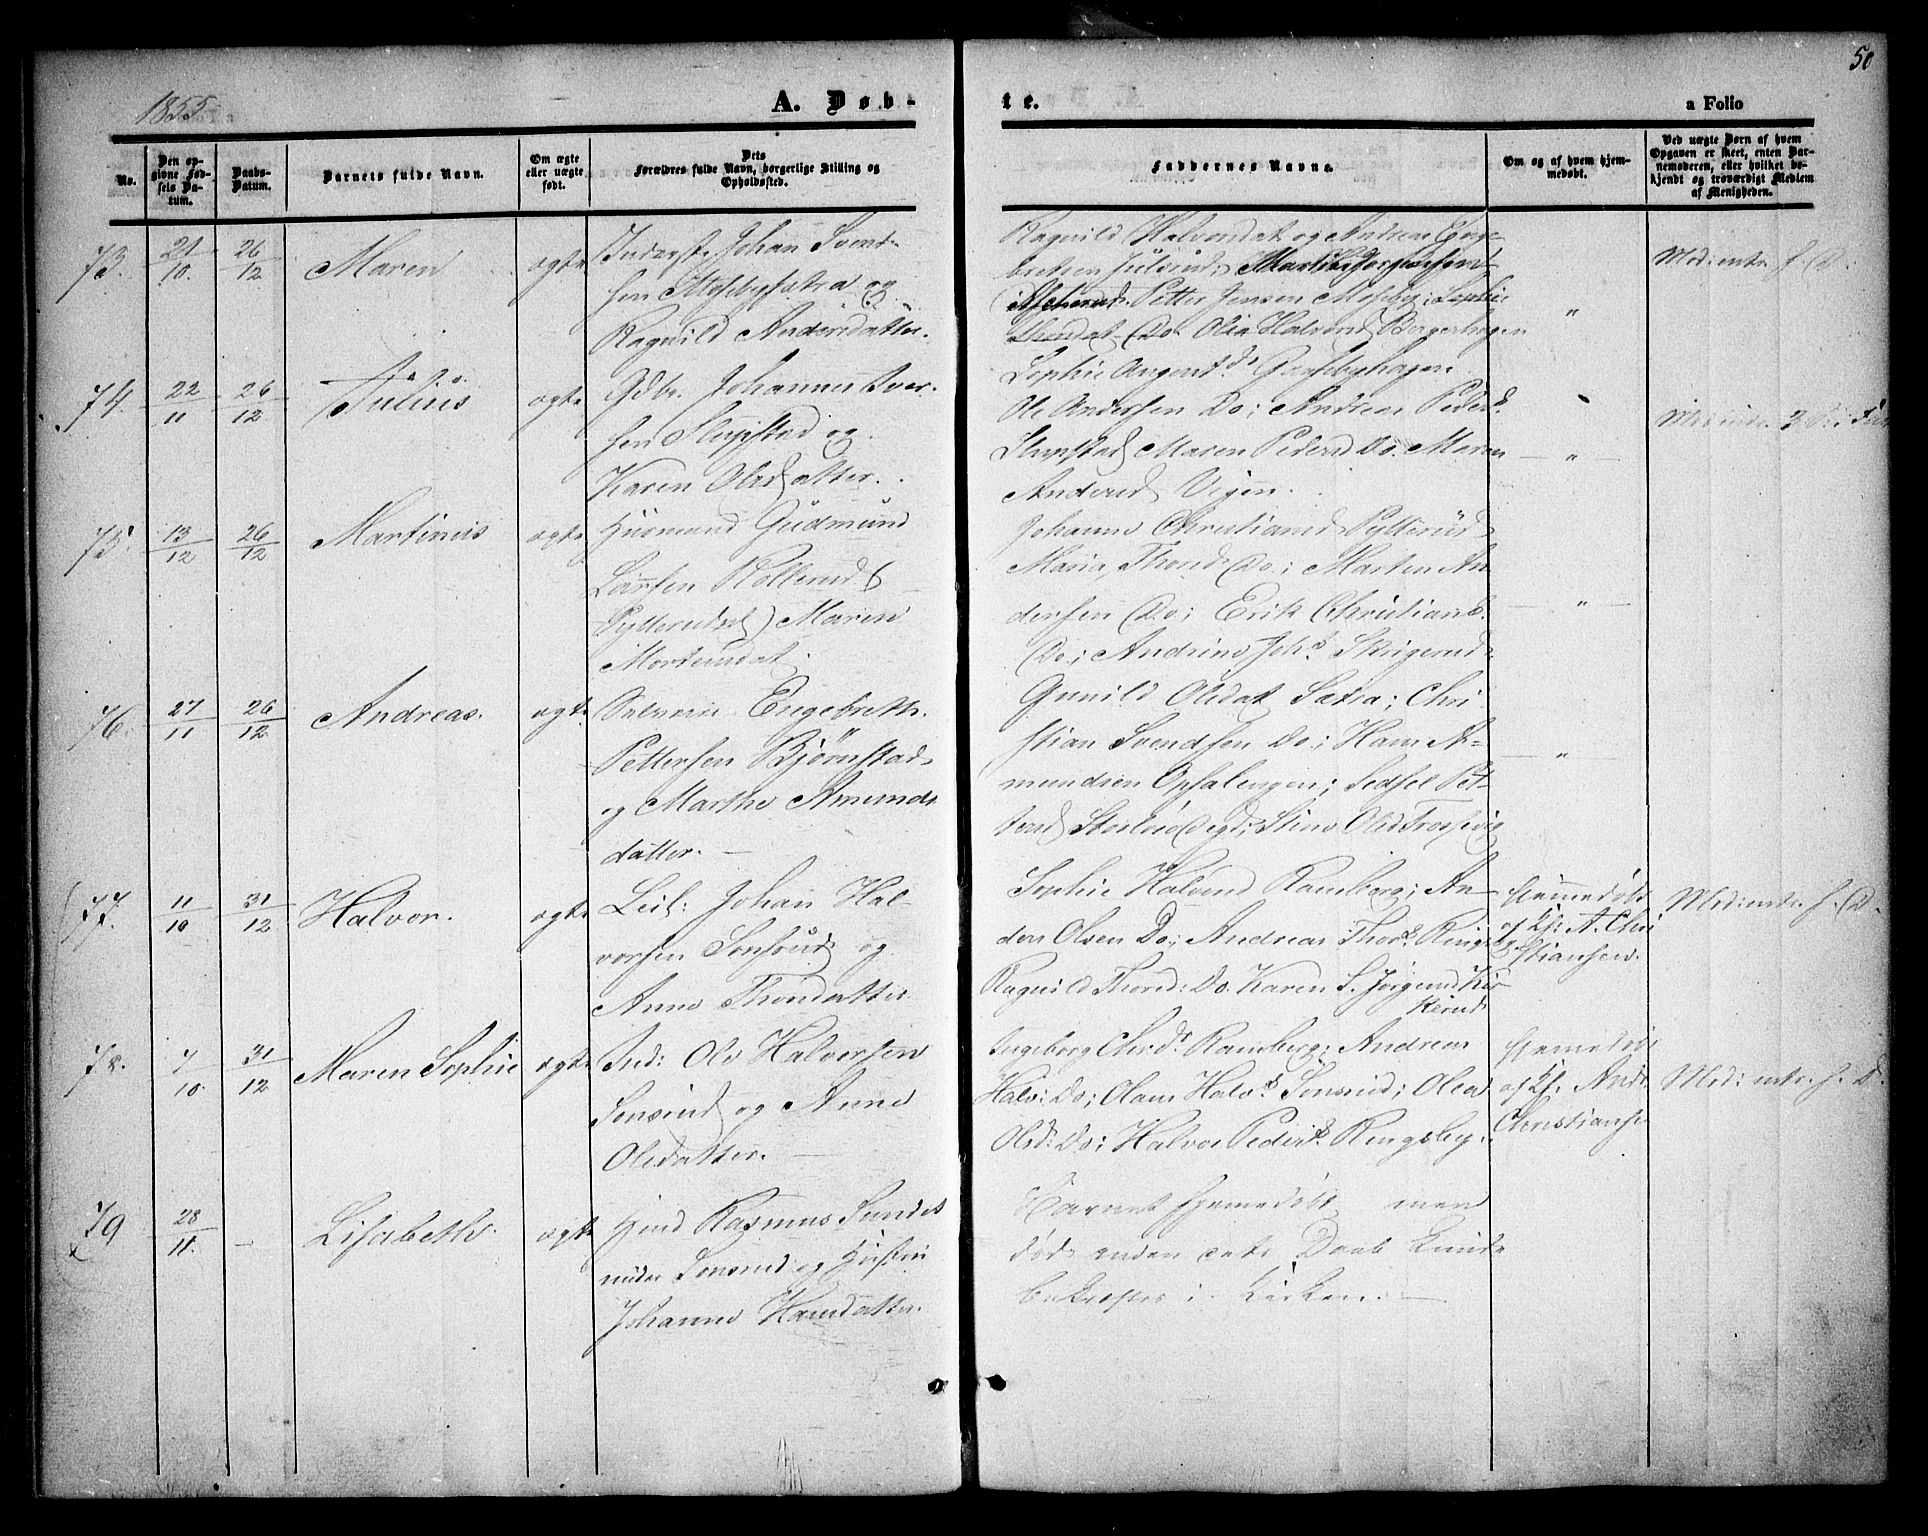 50
1855
A. Døb-
te.
a Folio
No.
Den op-
givne Fød-
sels Da-
tum.
Daabs-
Datum.
Barnets fulde Navn.
Om ægte
eller uægte
født.
Dets
Forældres fulde Navn, borgerlige Stilling og
Opholdssted.
Faddernes Navne.
Om og af hvem hjem-
medøbt.
Ved uægte Børn af hvem
Opgaven er skeet, enten Bar-
nemoderen, eller hvilket be-
kjendt og troværdigt Medlem
af Menigheden.
73. 21/10 26/12 Maren ægte
Inderst Johan Svend-
sen Mosebysætra og
Ragnild Andersdatter.
Ragnild Halvorsdat og Andreas Enge-
bretsen Julsrud;
Petter Jensen Moseby; Sophie
Do. Olia Halvorsd Borgerhagen
"
Mod: intr. f. D.
74. 22/11 26/12 Julius ægte
Gdbr. Johannes Iver-
sen Slupstad og
Karen Olsdatter.
Sophie
Ole Andersen Do; Andreas Peders.
Slupstad Maren Pedersd Do. Maren
Andersd Vigen.
"
75. 13/12 26/12 Martinus ægte
Huusmand Gudmund
Larssen Kollerud
Pytterudst) Maren
Mortensdat.
Johanne Christiansd Pytterud
Maria Thorsd Do; Morten An-
dersen Do; Erik Christians.
Do; Andrine Johs. Skrigerud
"
76. 27/11 26/12 Andreas. ægte
Selveier Engebreth
Pettersen Bjørnstad
og Marthe Amunds
datter. —
Gunild Olsdat Sætra; Chri
stian Svendsen Do; Hans A-
mundsen Opsalengen; Sidsel Pet-
tersd Stine Olsd
"
77. 11/10 31/12 Halvor. ægte
Leil: Johan Hal-
vorsen Sonsrud og
Anne Thorsdatter
Sophie Halvorsd Ramberg; An-
ders Olsen Do; Andreas Thors. Ringsby
Ragnild Thorsd: Do. Karen S. Jørgensd Kik
kerud
Hjemmedøbt
af Kf: A. Chri
stiansen.
Mod: intr. f. D.
78. 7/10 31/12 Maren Sophie ægte
Ind: Ole Halvorsen
Sonsrud og Anne
Olsdatter. —
Ingeborg Chrd. Ramberg; Andreas
Halv: Do; Olam Halvs Sonsrud; Olea
Olsd: Do; Halvor Peders. Ringsby.
Hjemmedøbt
af Kf: Andr.
Christianse
Mod: intr. f. D.
79 28/11. — Lisabeth. ægte
Hmd Rasmus Sundet
under Sonsrud og Hustru
Johanne Hansdatter.
Barnet hjemedøbt men
døde inden dets Daab kunde
bekræftes i Kirken. —